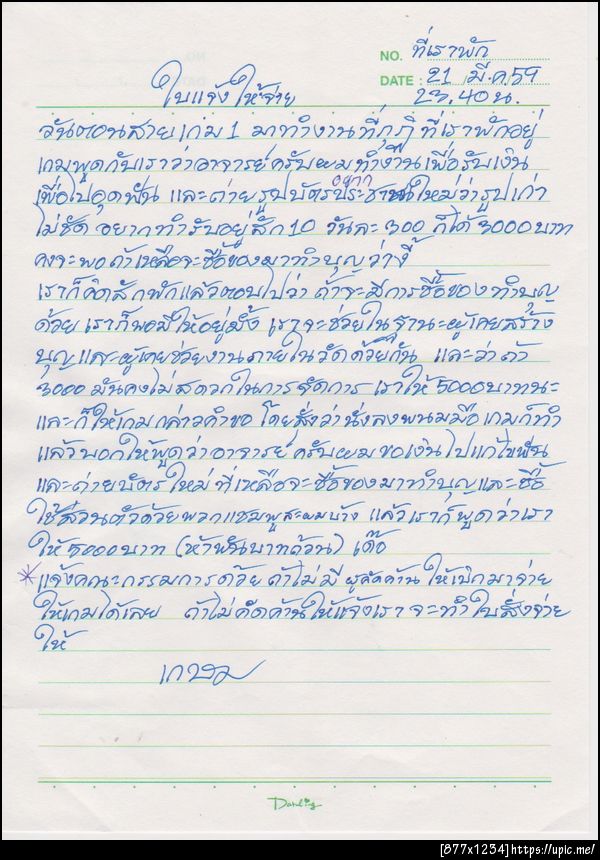 NO. ที่เราพัก
DATE : 21 มี.ค.59
23.40 น.
ใบแจ้งให้จ่าย
วันตอนสายเกม 1 มาทำงานที่กุฏิที่เราพักอยู่
เกมพูดกับเราว่าอาจารย์ครับผมทำงานเพื่อรับเงิน
เพื่อไปอุดฟัน และถ่ายรูปบัตรประชาชนใหม่ว่ารูปเก่า
ไม่ชัด อยากทำรับอยู่สัก 10 วันละ 300 ก็ได้ 3000 บาท
คงจะพอถ้าเหลือจะซื้อของมาทำบุญว่างี้
เราก็คิดสักพักแล้วตอบไปว่า ถ้าจะมีการซื้อของทำบุญ
ด้วย เราก็พอมีให้อยู่มั้ง เราจะช่วยในฐานะผู้เคยสร้าง
บุญและผู้เคยช่วยงานภายในวัดด้วยกัน และว่าถ้า
3000 มันคงไม่สดวกในการจัดการ เราให้ 5000 บาทนะ
และก็ให้เกมกล่าวคำขอ โดยสั่งว่านั่งลงพนมมือเกมก็ทำ
แล้วบอกให้พูดว่าอาจารย์ครับผมขอเงินไปแก้ไขฟัน
และถ่ายบัตรใหม่ ที่เหลือจะซื้อของมาทำบุญและซื้อ
ใช้ส่วนตัวด้วยพวกแชมพูสระผมบ้าง แล้วเราก็พูดว่าเรา
ให้ 5000 บาท (ห้าพันบาทถ้วน) เด้อ
* แจ้งคณะกรรมการด้วย ถ้าไม่มีผู้คัดค้าน ให้เบิกมาจ่าย
ให้เกมได้เลย ถ้าไม่คัดค้านให้แจ้งเราจะทำใบสั่งจ่าย
ให้
เกษม
Darling
[877x1234]https://upic.me/